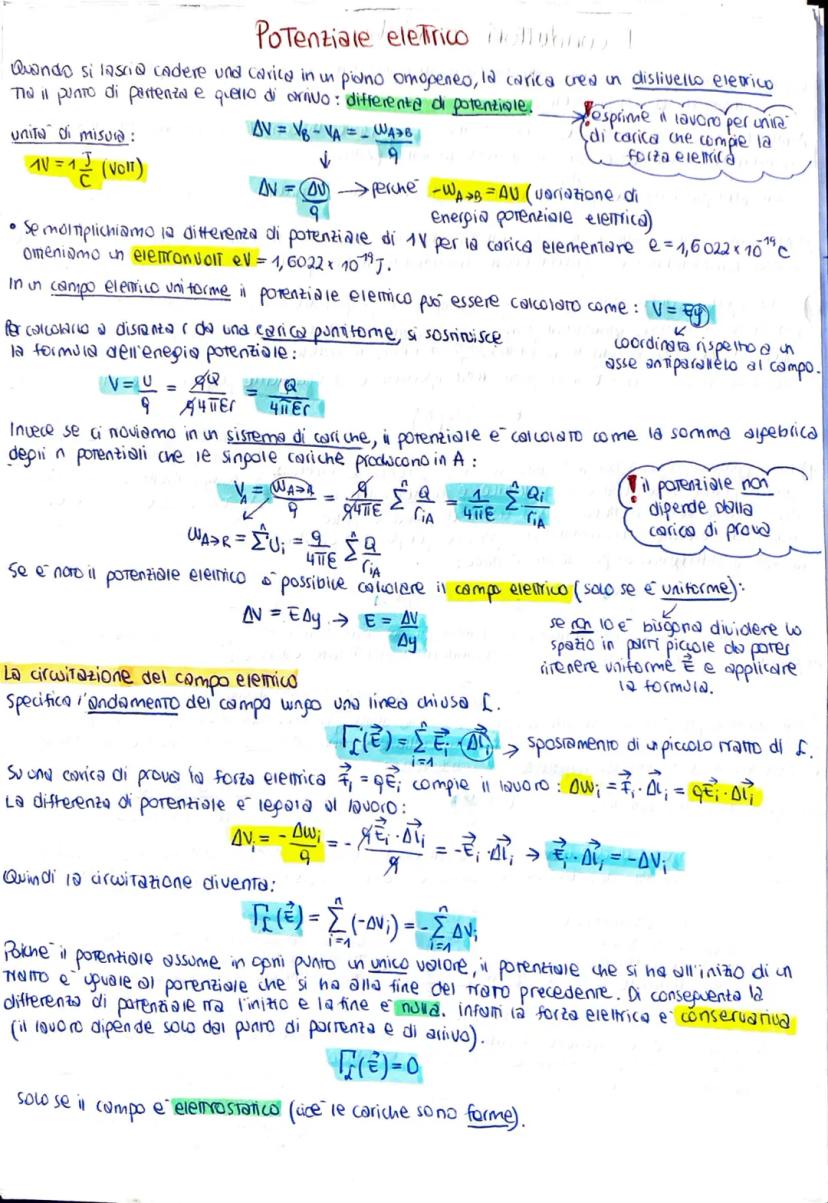 Potenziale elettrico
Quando si lascia cadere una carica in un piano omogeneo, la carica crea un dislivello elettrico
tra il punto di partenza e quello di arrivo: differenza di potenziale.
! esprime il lavoro per unità
di carica che compie la
forza elettrica
unità di misura:
1V = 1 J/C (volt)
ΔV = V_B - V_A = - W_A→B / q
↓
ΔV = ΔU / q → perché -W_A→B = ΔU (variazione di
energia potenziale elettrica)
• Se moltiplichiamo la differenza di potenziale di 1V per la carica elementare e = 1,6022 × 10⁻¹⁹ C
otteniamo un elettronvolt eV = 1,6022 × 10⁻¹⁹ J.
In un campo elettrico uniforme il potenziale elettrico può essere calcolato come: V = Ey
coordinata rispetto a un
asse antiparallelo al campo.
Per calcolarlo a distanza r da una carica puntiforme, si sostituisce
la formula dell'enegia potenziale:
V = U/q = qQ / q4πεr = Q / 4πεr
Invece se ci troviamo in un sistema di cariche, il potenziale è calcolato come la somma algebrica
degli n potenziali che le singole cariche producono in A:
V_A = W_A→R / q = q / q4πε Σⁿ Q / r_iA = 1 / 4πε Σⁿ Q_i / r_iA
! il potenziale non
dipende dalla
carica di prova
W_A→R = Σⁿ U_i = q / 4πε Σⁿ Q / r_iA
Se è noto il potenziale elettrico è possibile calcolare il campo elettrico (solo se è uniforme):
ΔV = EΔy → E = ΔV / Δy
se non lo è bisogna dividere lo
spazio in parti piccole da poter
ritenere uniforme E⃗ e applicare
la formula.
La circuitazione del campo elettrico
Specifica l'andamento del campo lungo una linea chiusa L.
Γ_L(E⃗) = Σⁿ_i=1 E⃗_i · Δl⃗_i → spostamento di un piccolo tratto di L.
Su una carica di prova la forza elettrica F⃗_i = qE⃗_i compie il lavoro: ΔW_i = F⃗_i · Δl⃗_i = qE⃗_i · Δl⃗_i
La differenza di potenziale è legata al lavoro:
ΔV_i = - ΔW_i / q = - qE⃗_i · Δl⃗_i / q = -E⃗_i · Δl⃗_i → E⃗_i · Δl⃗_i = -ΔV_i
Quindi la circuitazione diventa:
Γ_L(E⃗) = Σⁿ_i=1 (-ΔV_i) = -Σⁿ_i=1 ΔV_i
Poiché il potenziale assume in ogni punto un unico valore, il potenziale che si ha all'inizio di un
tratto è uguale al potenziale che si ha alla fine del tratto precedente. Di conseguenza la
differenza di potenziale tra l'inizio e la fine è nulla. infatti la forza elettrica è conservativa
(il lavoro dipende solo dal punto di partenza e di arrivo).
Γ_L(E⃗) = 0
solo se il campo è elettrostatico (cioè le cariche sono ferme).